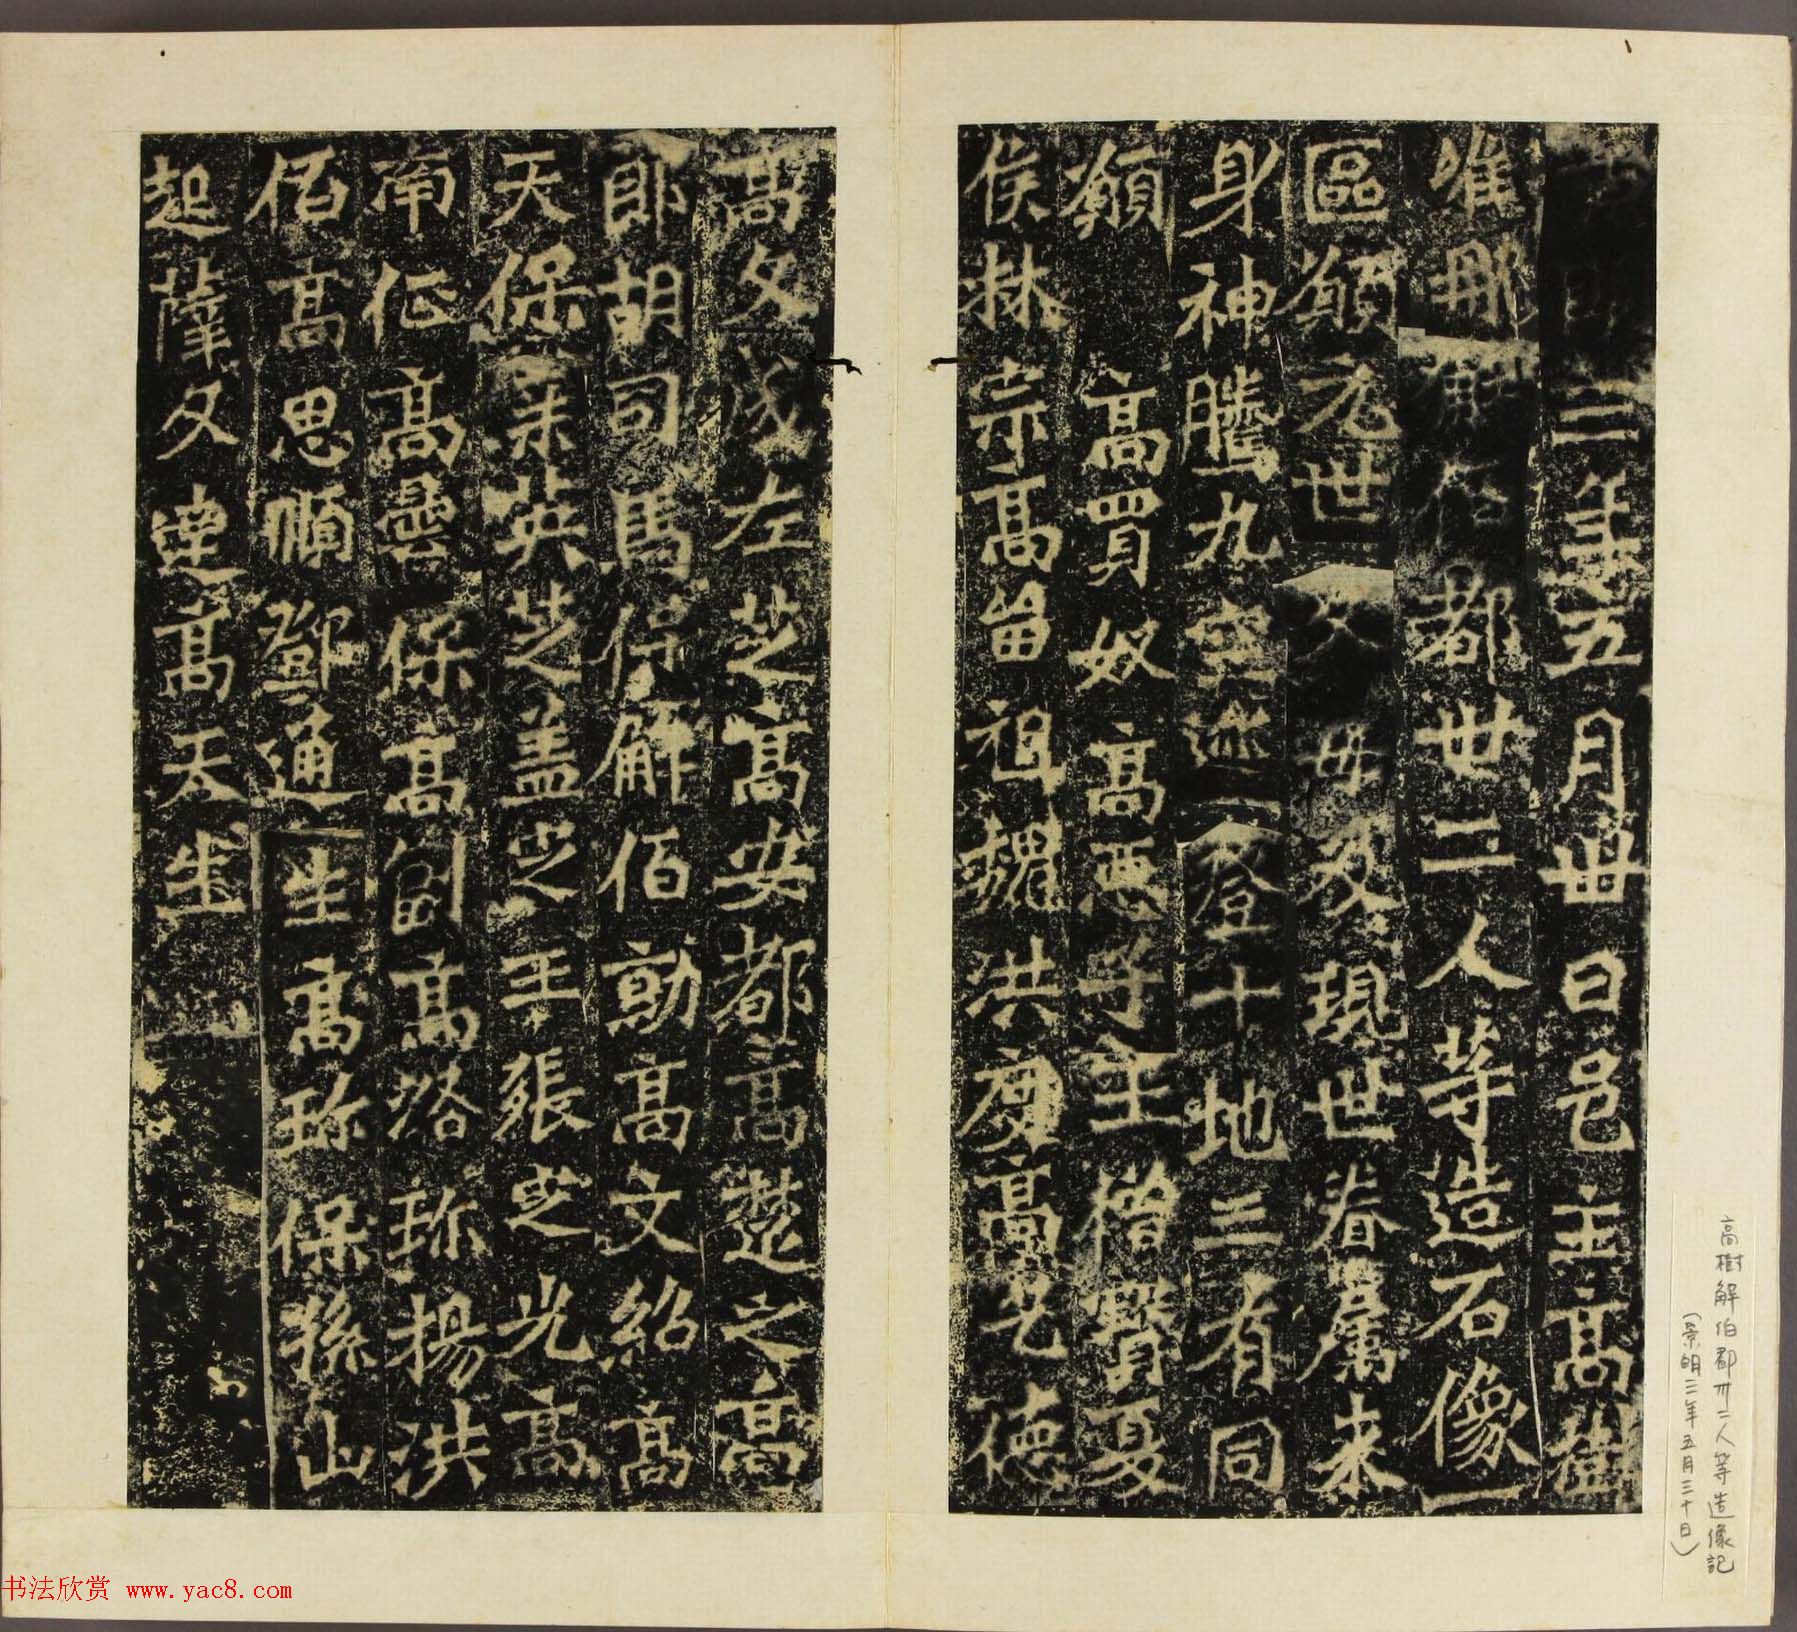 景明三年五月卅日邑主高樹
唯那解佰都卅二人等造石像一
區願元世父母及現世眷属来
身神騰九空迹登十地三有同
願 高買奴高惡子王僧寶夏
侯林宗高留祖魏洪度高乞德
高文成左芝高安都高楚之高
郎胡司馬保解佰勍高文紹高
天保朱英芝盖芝王張芝光高
南征高曇保高高洛珎楊洪
佰高思順鄧通生高珎保孫山
起薩文達高天生
高樹解伯都卅二人等造像記
(景明三年五月三十日)
书法欣赏 www.yac8.com